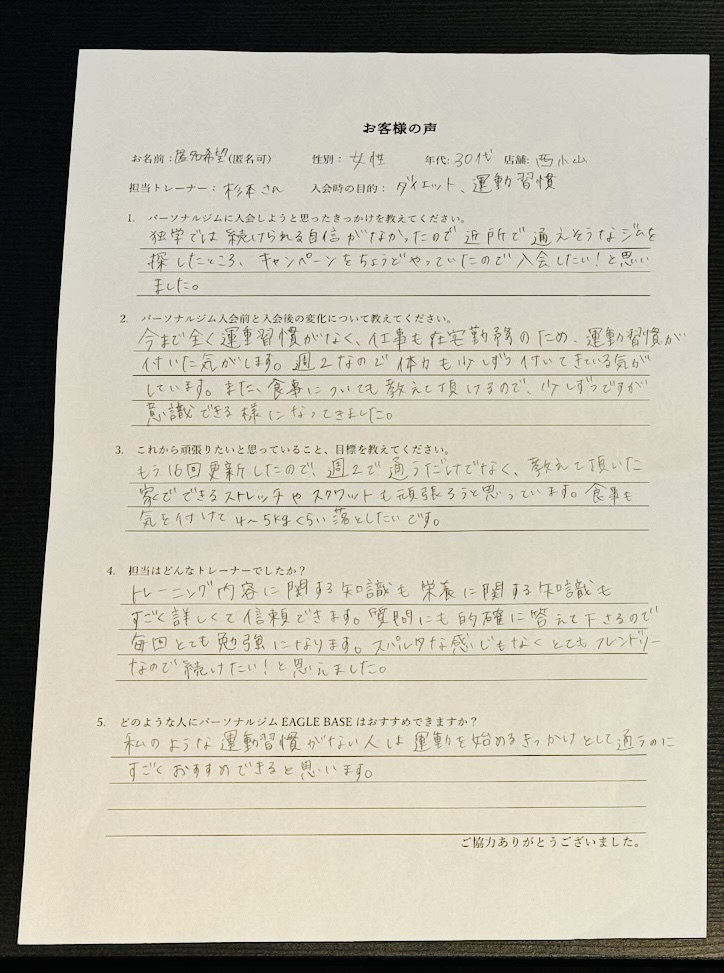 お客様の声
お名前：匿名希望(匿名可) 性別： 女性 年代: 30代 店舗: 西小山
担当トレーナー： 杉本さん 入会時の目的： ダイエット、運動習慣
1. パーソナルジムに入会しようと思ったきっかけを教えてください。
独学では続けられる自信がなかったので近所で通えそうなジムを
探したところ、キャンペーンをちょうどやっていたので入会したい！と思い
ました。
2. パーソナルジム入会前と入会後の変化について教えてください。
今まで全く運動習慣がなく、仕事も在宅勤務のため、運動習慣が
付いた気がします。週2なので体力も少しずつ付いてきている気が
しています。また、食事についても教えて頂けるので、少しずつですが
意識できる様になってきました。
3. これから頑張りたいと思っていること、目標を教えてください。
もう16回更新したので、週2で通うだけでなく、教えて頂いた
家でできるストレッチやスクワットも頑張ろうと思っています。食事も
気を付けて4〜5kgくらい落としたいです。
4. 担当はどんなトレーナーでしたか？
トレーニング内容に関する知識も栄養に関する知識も
すごく詳しくて信頼できます。質問にも的確に答えて下さるので
毎回とても勉強になります。スパルタな感じもなくとてもフレンドリー
なので続けたい！と思えました。
5. どのような人にパーソナルジム EAGLE BASE はおすすめできますか？
私のような運動習慣がない人は運動を始めるきっかけとして通うのに
すごくおすすめできると思います。
ご協力ありがとうございました。